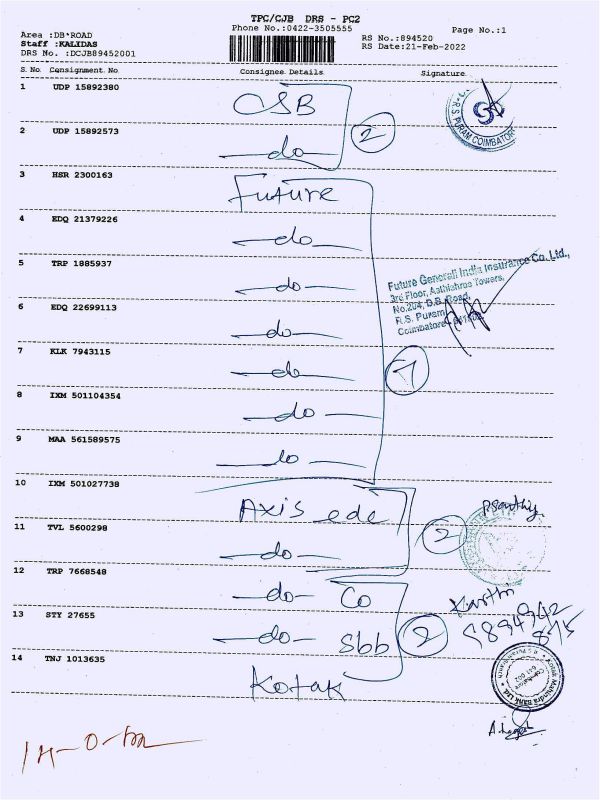 TPC/CJB DRS - PC2
Phone No.:0422-3505555
Area :DB*ROAD
Staff :KALIDAS
DRS No. :DCJB89452001
RS No.:894520
RS Date:21-Feb-2022
Page No.:1
S.No. Consignment No Consignee Details Signature
1 UDP 15892380 CSB
R.S. PURAM COIMBATORE
2 UDP 15892573 do
2
3 HSR 2300163 Future
4 EDQ 21379226 do
5 TRP 1885937 do
Future Generali India Insurance Co.Ltd.,
3rd Floor, Aathishree Towers,
No.204, D.B.Road,
R.S. Puram
Coimbatore
6 EDQ 22699113 do
7 KLK 7943115 do
7
8 IXM 501104354 do
9 MAA 561589575 do
10 IXM 501027738 Axis edc
11 TVL 5600298 do
2
12 TRP 7668548 do Co
13 STY 27655 do Sbb
2
14 TNJ 1013635 Kotak
Kotak Mahindra Bank Ltd.
Coimbatore
641 002